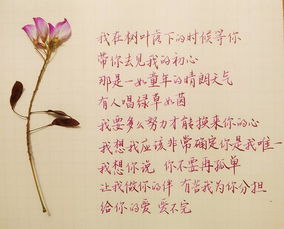 我在树叶落下的时候等你
带你去见我的初心
那是一如童年的晴朗天气
有人唱绿草如茵
我要多么努力才能换来你的心
我想我应该非常确定你是我唯一
我想你说 你不要再孤单
让我做你的伴 有苦我为你分担
给你的爱 爱不完